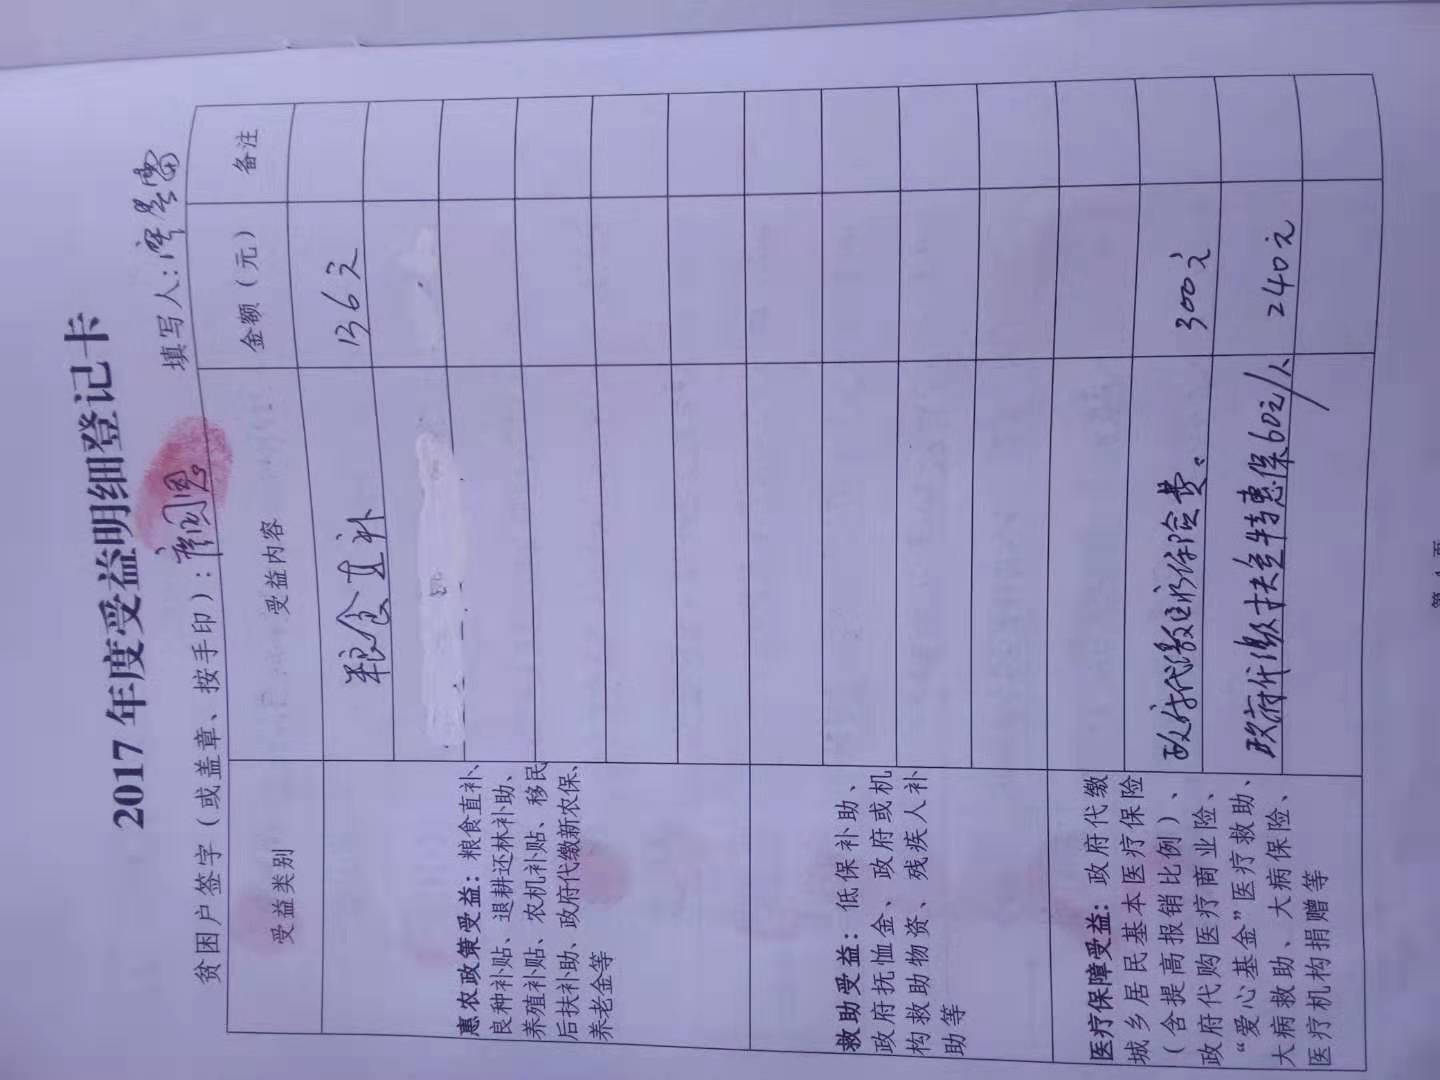 2017年度受益明细登记卡
贫困户签字（或盖章、按手印）: 填写人:
受益类别 受益内容 金额（元） 备注
粮食直补 136元
惠农政策受益：粮食直补、
良种补贴、退耕还林补助、
养殖补贴、农机补贴、移民
后扶补助、政府代缴新农保、
养老金等
救助受益：低保补助、
政府抚恤金、政府或机
构救助物资、残疾人补
助等
医疗保障受益：政府代缴
城乡居民基本医疗保险
（含提高报销比例）、
政府代购医疗商业险、
“爱心基金”医疗救助、
大病救助、大病保险、
医疗机构捐赠等
政府代缴医疗保险费。 300元
政府代缴扶贫特惠保60元/人 240元